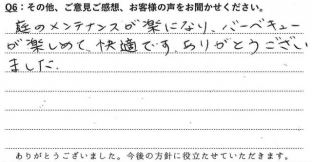 Q6：その他、ご意見ご感想、お客様の声をお聞かせください。
庭のメンテナンスが楽になり、バーベキュー
が楽しめて、快適です。ありがとうござい
ました。
ありがとうございました。今後の方針に役立たせていただきます。